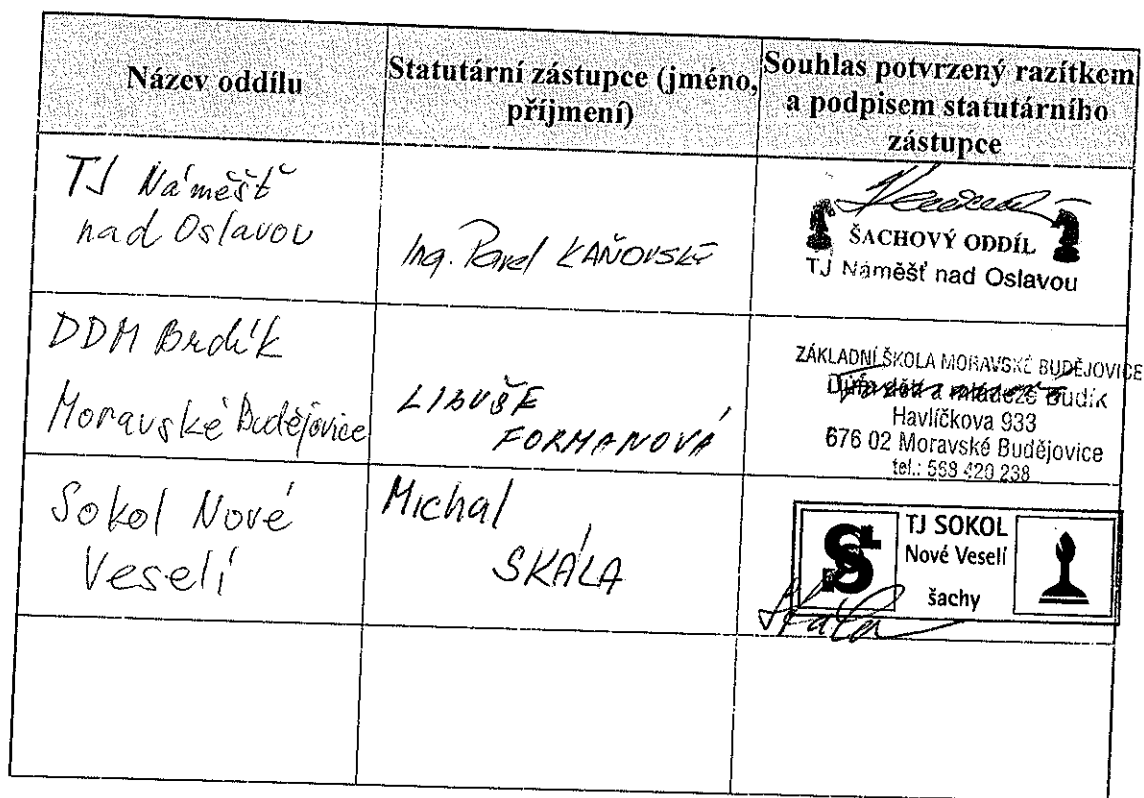 Název oddílu
Statutární zástupce (jméno,
příjmení)
Souhlas potvrzený razítkem
a podpisem statutárního
zástupce
TJ Náměšť
nad Oslavou
Ing. Pavel KAŇOVSKÝ
ŠACHOVÝ ODDÍL
TJ Náměšť nad Oslavou
DDM Budík
Moravské Budějovice
LIBUŠE
FORMANOVÁ
ZÁKLADNÍ ŠKOLA MORAVSKÉ BUDĚJOVICE
Dům dětí a mládeže Budík
Havlíčkova 933
676 02 Moravské Budějovice
tel.: 568 420 238
Sokol Nové
Veselí
Michal
SKÁLA
TJ SOKOL
Nové Veselí
šachy
Skála